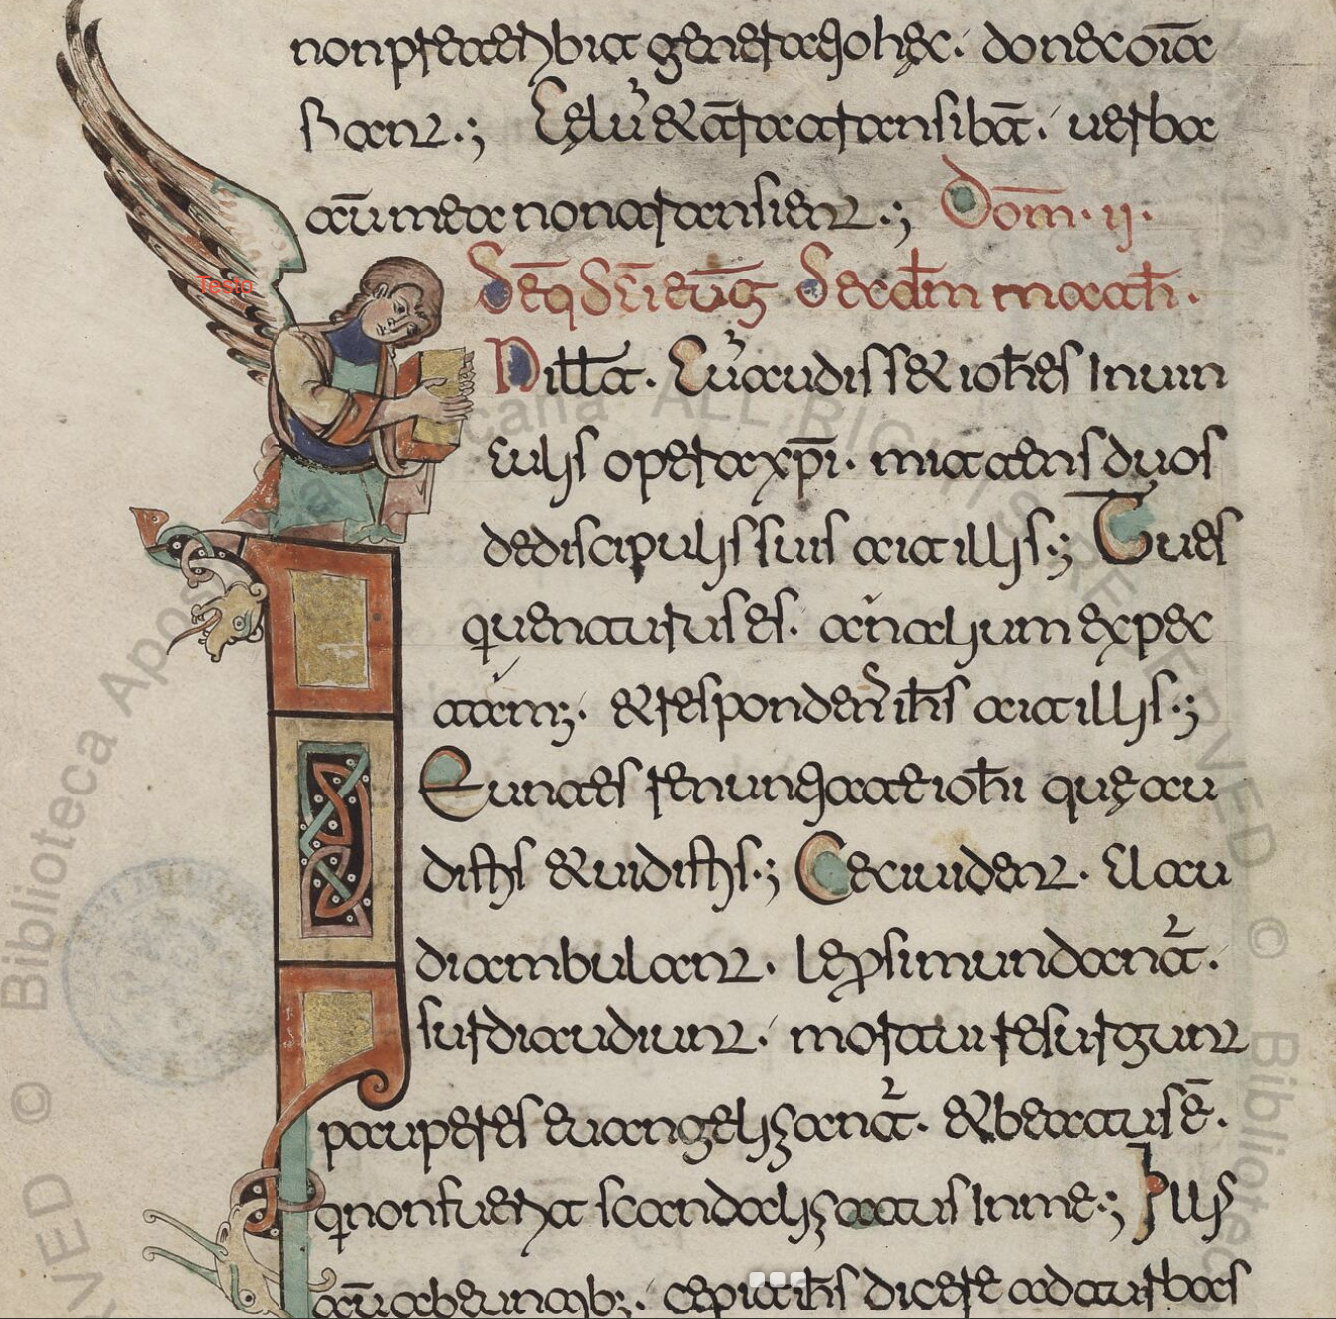 non preteribit generatio hec. donec omia
fiant.; Celũ & tra transibt. uerba
aũ mea non transient.; Dom. ij.
Seq sci eug Secdm math.
In illt. Cũ audiss& iohes In uin
culis opera xpi. mittens duos
de discipulis suis ait illis.; Tu es
qui uenturus es. an alium expec
tam; &respondens ihs ait illis.;
Euntes renuntiate iohi quę au
distis &uidistis.; Ceci uident. clau
di ambulant. lepsi mundant.
surdi audiunt. mortui resurgunt
pauperes euangelizant. &beatus ẽ.
q non fuerit scandalizatus In me.; Illis
aũ abeuntib;. cepit ihs dicere ad turbas
Testo
© Biblioteca Apostolica Vaticana ALL RIGHTS RESERVED © Biblioteca